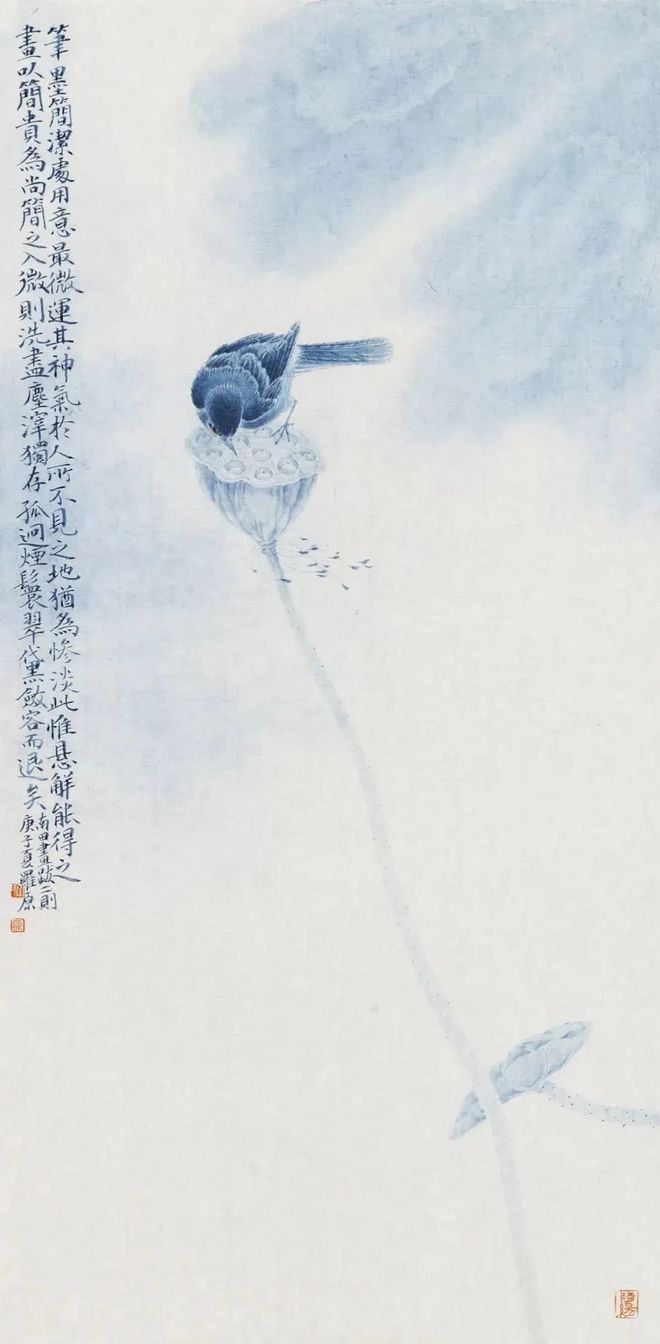 筆墨簡潔處用意最微運其神氣於人所不見之地猶為慘淡此惟懸解能得之
畫以簡貴為尚簡之入微則洗盡塵滓獨存孤迥煙鬟翠黛斂容而退矣
南田畫跋二則
庚子夏羅原